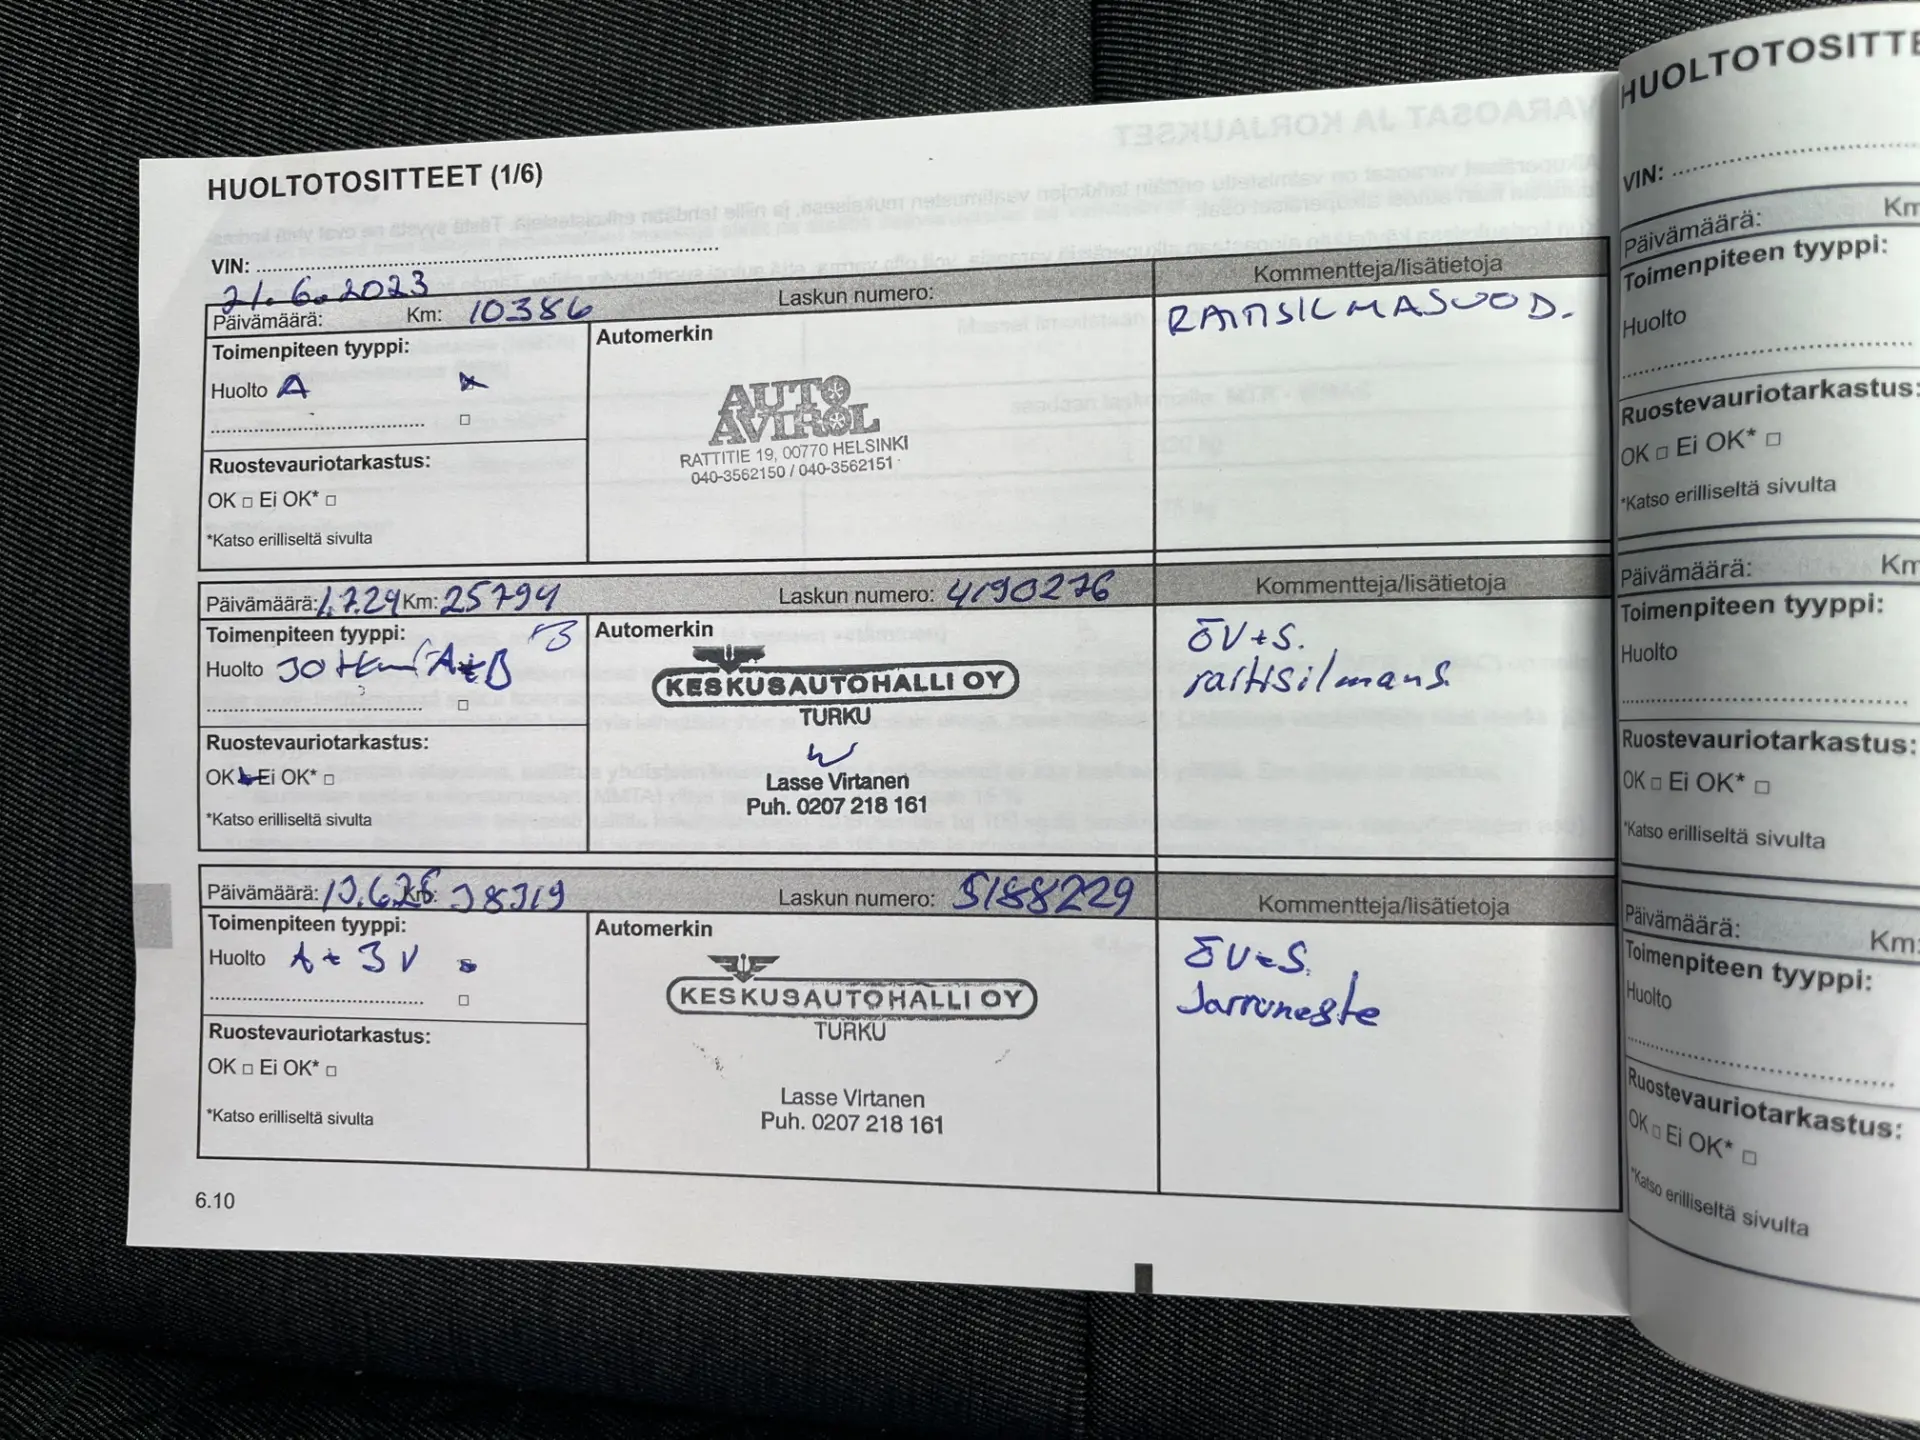 HUOLTOTOSITTEET (1/6)
VIN:
21.6.2023
Päivämäärä: Km: 10386 Laskun numero: Kommentteja/lisätietoja
Toimenpiteen tyyppi:
Huolto A
Ruostevauriotarkastus:
OK □ Ei OK* □
*Katso erilliseltä sivulta
Automerkin
AUTO
AVIROL
RATTITIE 19, 00770 HELSINKI
040-3562150 / 040-3562151
RAITISILMASUOD.
Päivämäärä: 1.7.24 Km: 25794 Laskun numero: 4190276 Kommentteja/lisätietoja
Toimenpiteen tyyppi:
Huolto 30 tkm A+B
Ruostevauriotarkastus:
OK Ei OK* □
*Katso erilliseltä sivulta
Automerkin
KESKUSAUTOHALLI OY
TURKU
Lasse Virtanen
Puh. 0207 218 161
ÖV+S.
raitisilmans.
Päivämäärä: 13.6.25 Km: 38319 Laskun numero: 5188229 Kommentteja/lisätietoja
Toimenpiteen tyyppi:
Huolto A + 3 V
Ruostevauriotarkastus:
OK □ Ei OK* □
*Katso erilliseltä sivulta
Automerkin
KESKUSAUTOHALLI OY
TURKU
Lasse Virtanen
Puh. 0207 218 161
ÖV+S.
Jarruneste
6.10
HUOLTOTOSITTE
VIN:
Päivämäärä: Km
Toimenpiteen tyyppi:
Huolto
Ruostevauriotarkastus:
OK □ Ei OK* □
*Katso erilliseltä sivulta
Päivämäärä: Km
Toimenpiteen tyyppi:
Huolto
Ruostevauriotarkastus:
OK □ Ei OK* □
*Katso erilliseltä sivulta
Päivämäärä: Km:
Toimenpiteen tyyppi:
Huolto
Ruostevauriotarkastus:
OK □ Ei OK* □
*Katso erilliseltä sivulta